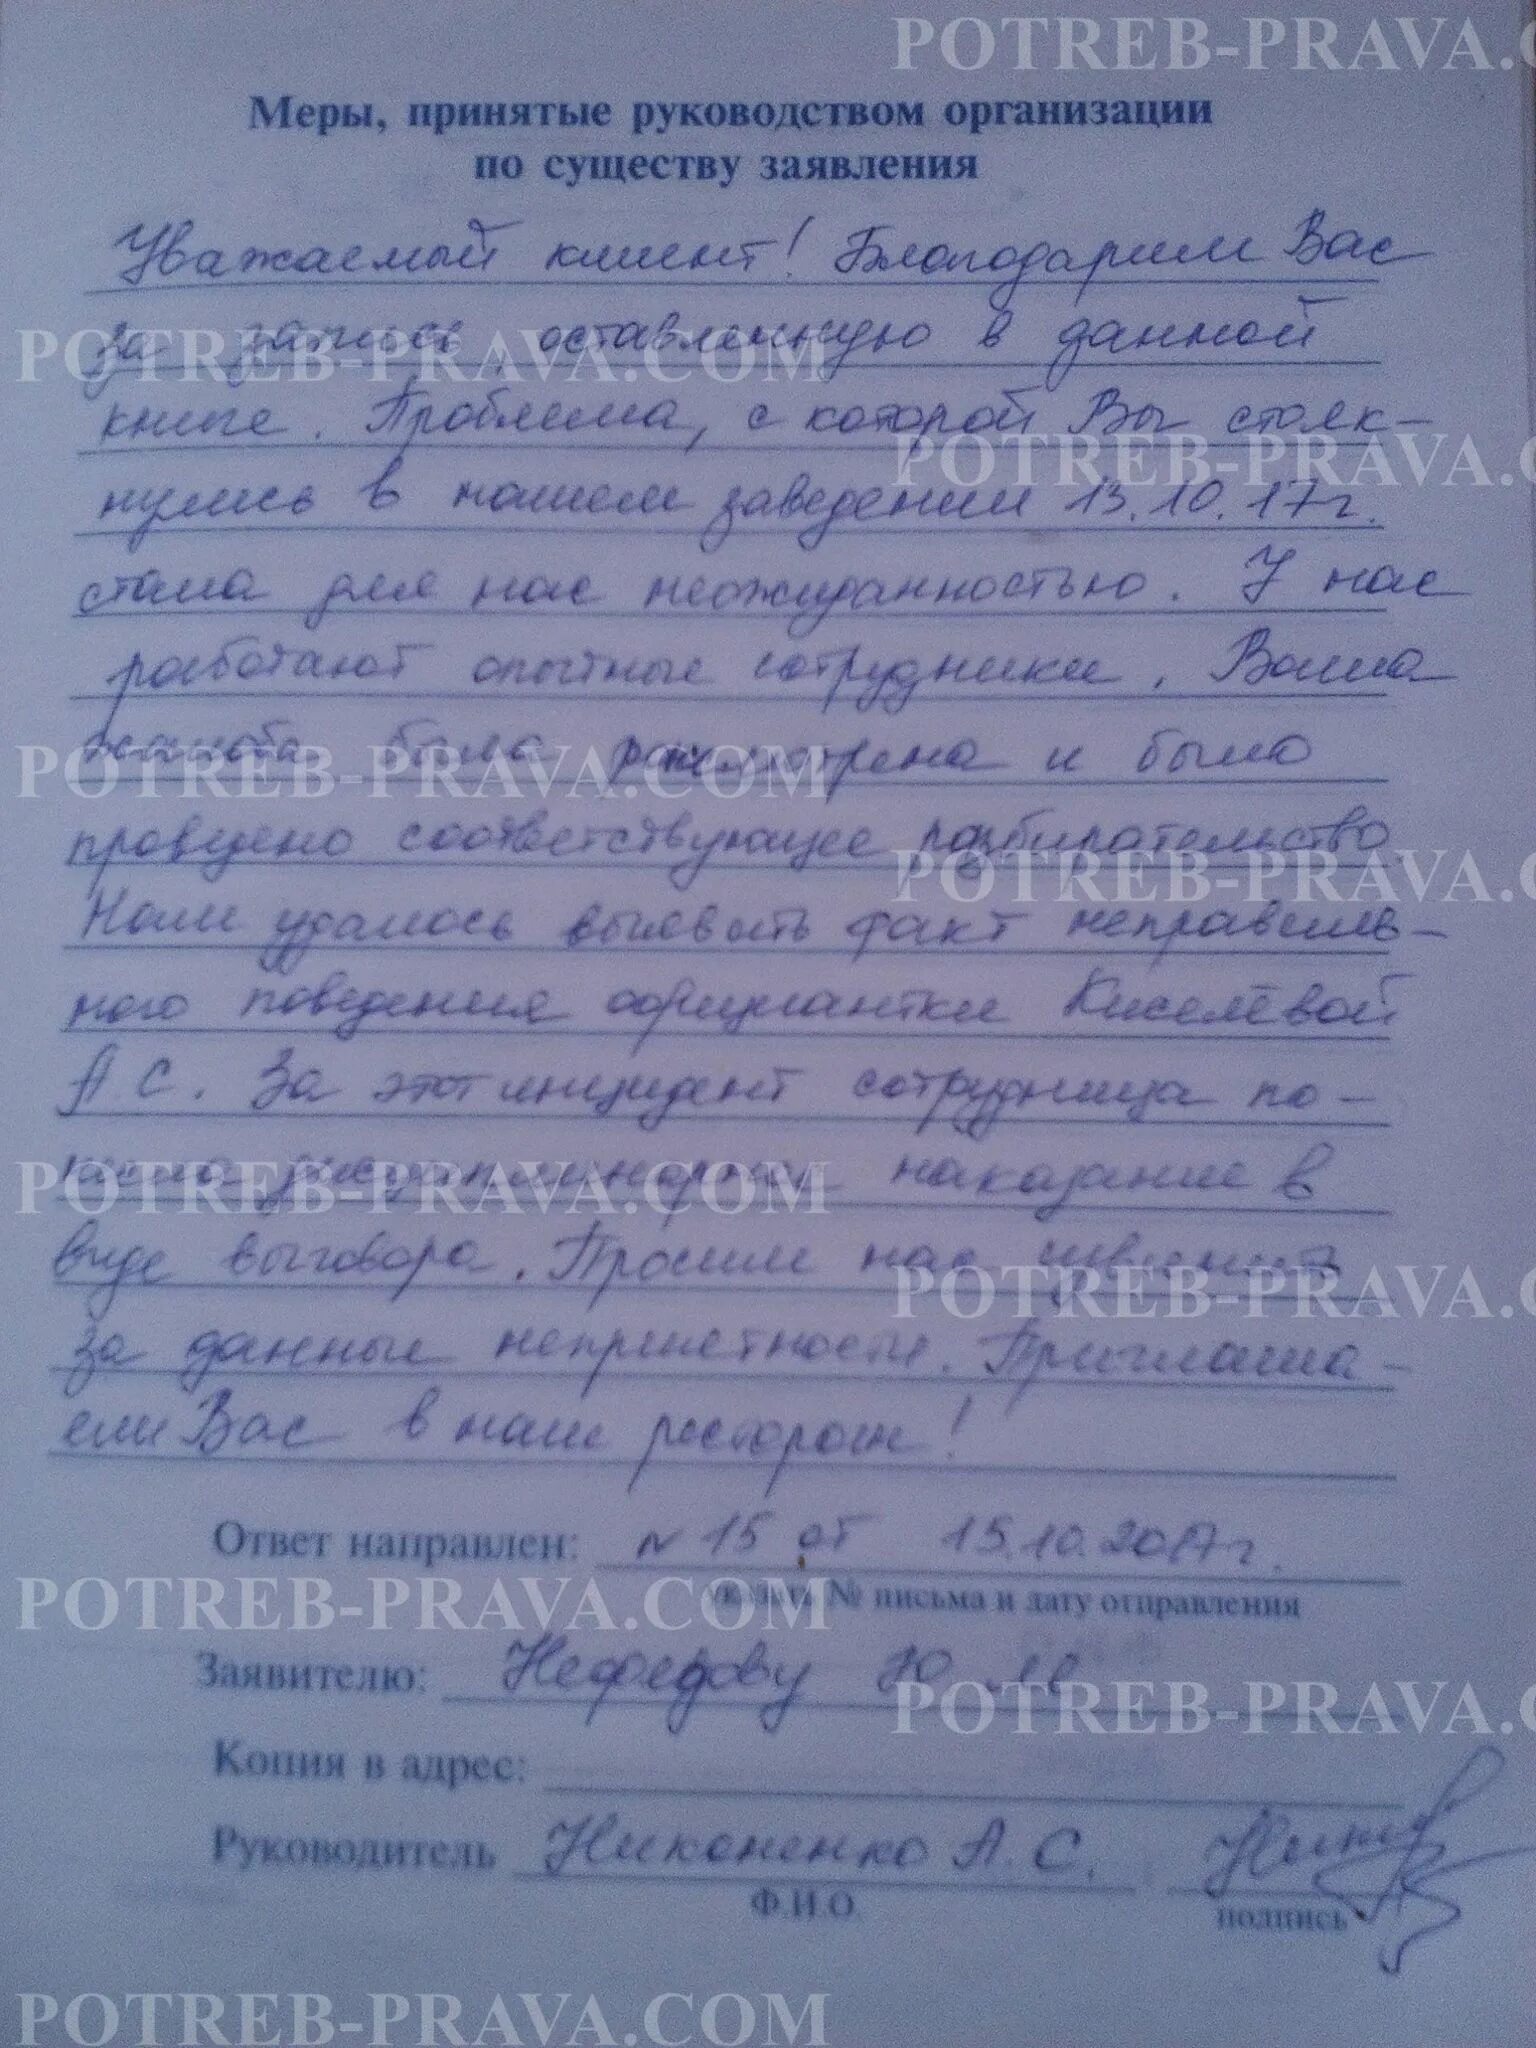 POTREB-PRAVA.C
Меры, принятые руководством организации
по существу заявления
Уважаемый клиент! Благодарим Вас
за запись, оставленную в данной
POTREB-PRAVA.COM
книге. Проблема, с которой Вы столк-
POTREB-PRAVA.C
нулись в нашем заведении 13.10.17г.
стала для нас неожиданностью. У нас
работают опытные сотрудники. Ваша
жалоба была рассмотрена и было
POTREB-PRAVA.COM
проведено соответствующее разбирательство.
POTREB-PRAVA.C
Нам удалось выявить факт неправиль-
ного поведения официантки Киселёвой
А.С. За этот инцидент сотрудница по-
несла дисциплинарное наказание в
POTREB-PRAVA.COM
виде выговора. Просим нас извинить
POTREB-PRAVA.C
за данные неприятности. Приглаша-
ем Вас в наш ресторан!
Ответ направлен: N 15 от 15.10.2017г.
POTREB-PRAVA.COM
указать № письма и дату отправления
Заявителю: Нефедову Ю
POTREB-PRAVA.C
Копия в адрес:
Руководитель Никоненко А.С.
Ф.И.О. подпись
POTREB-PRAVA.COM